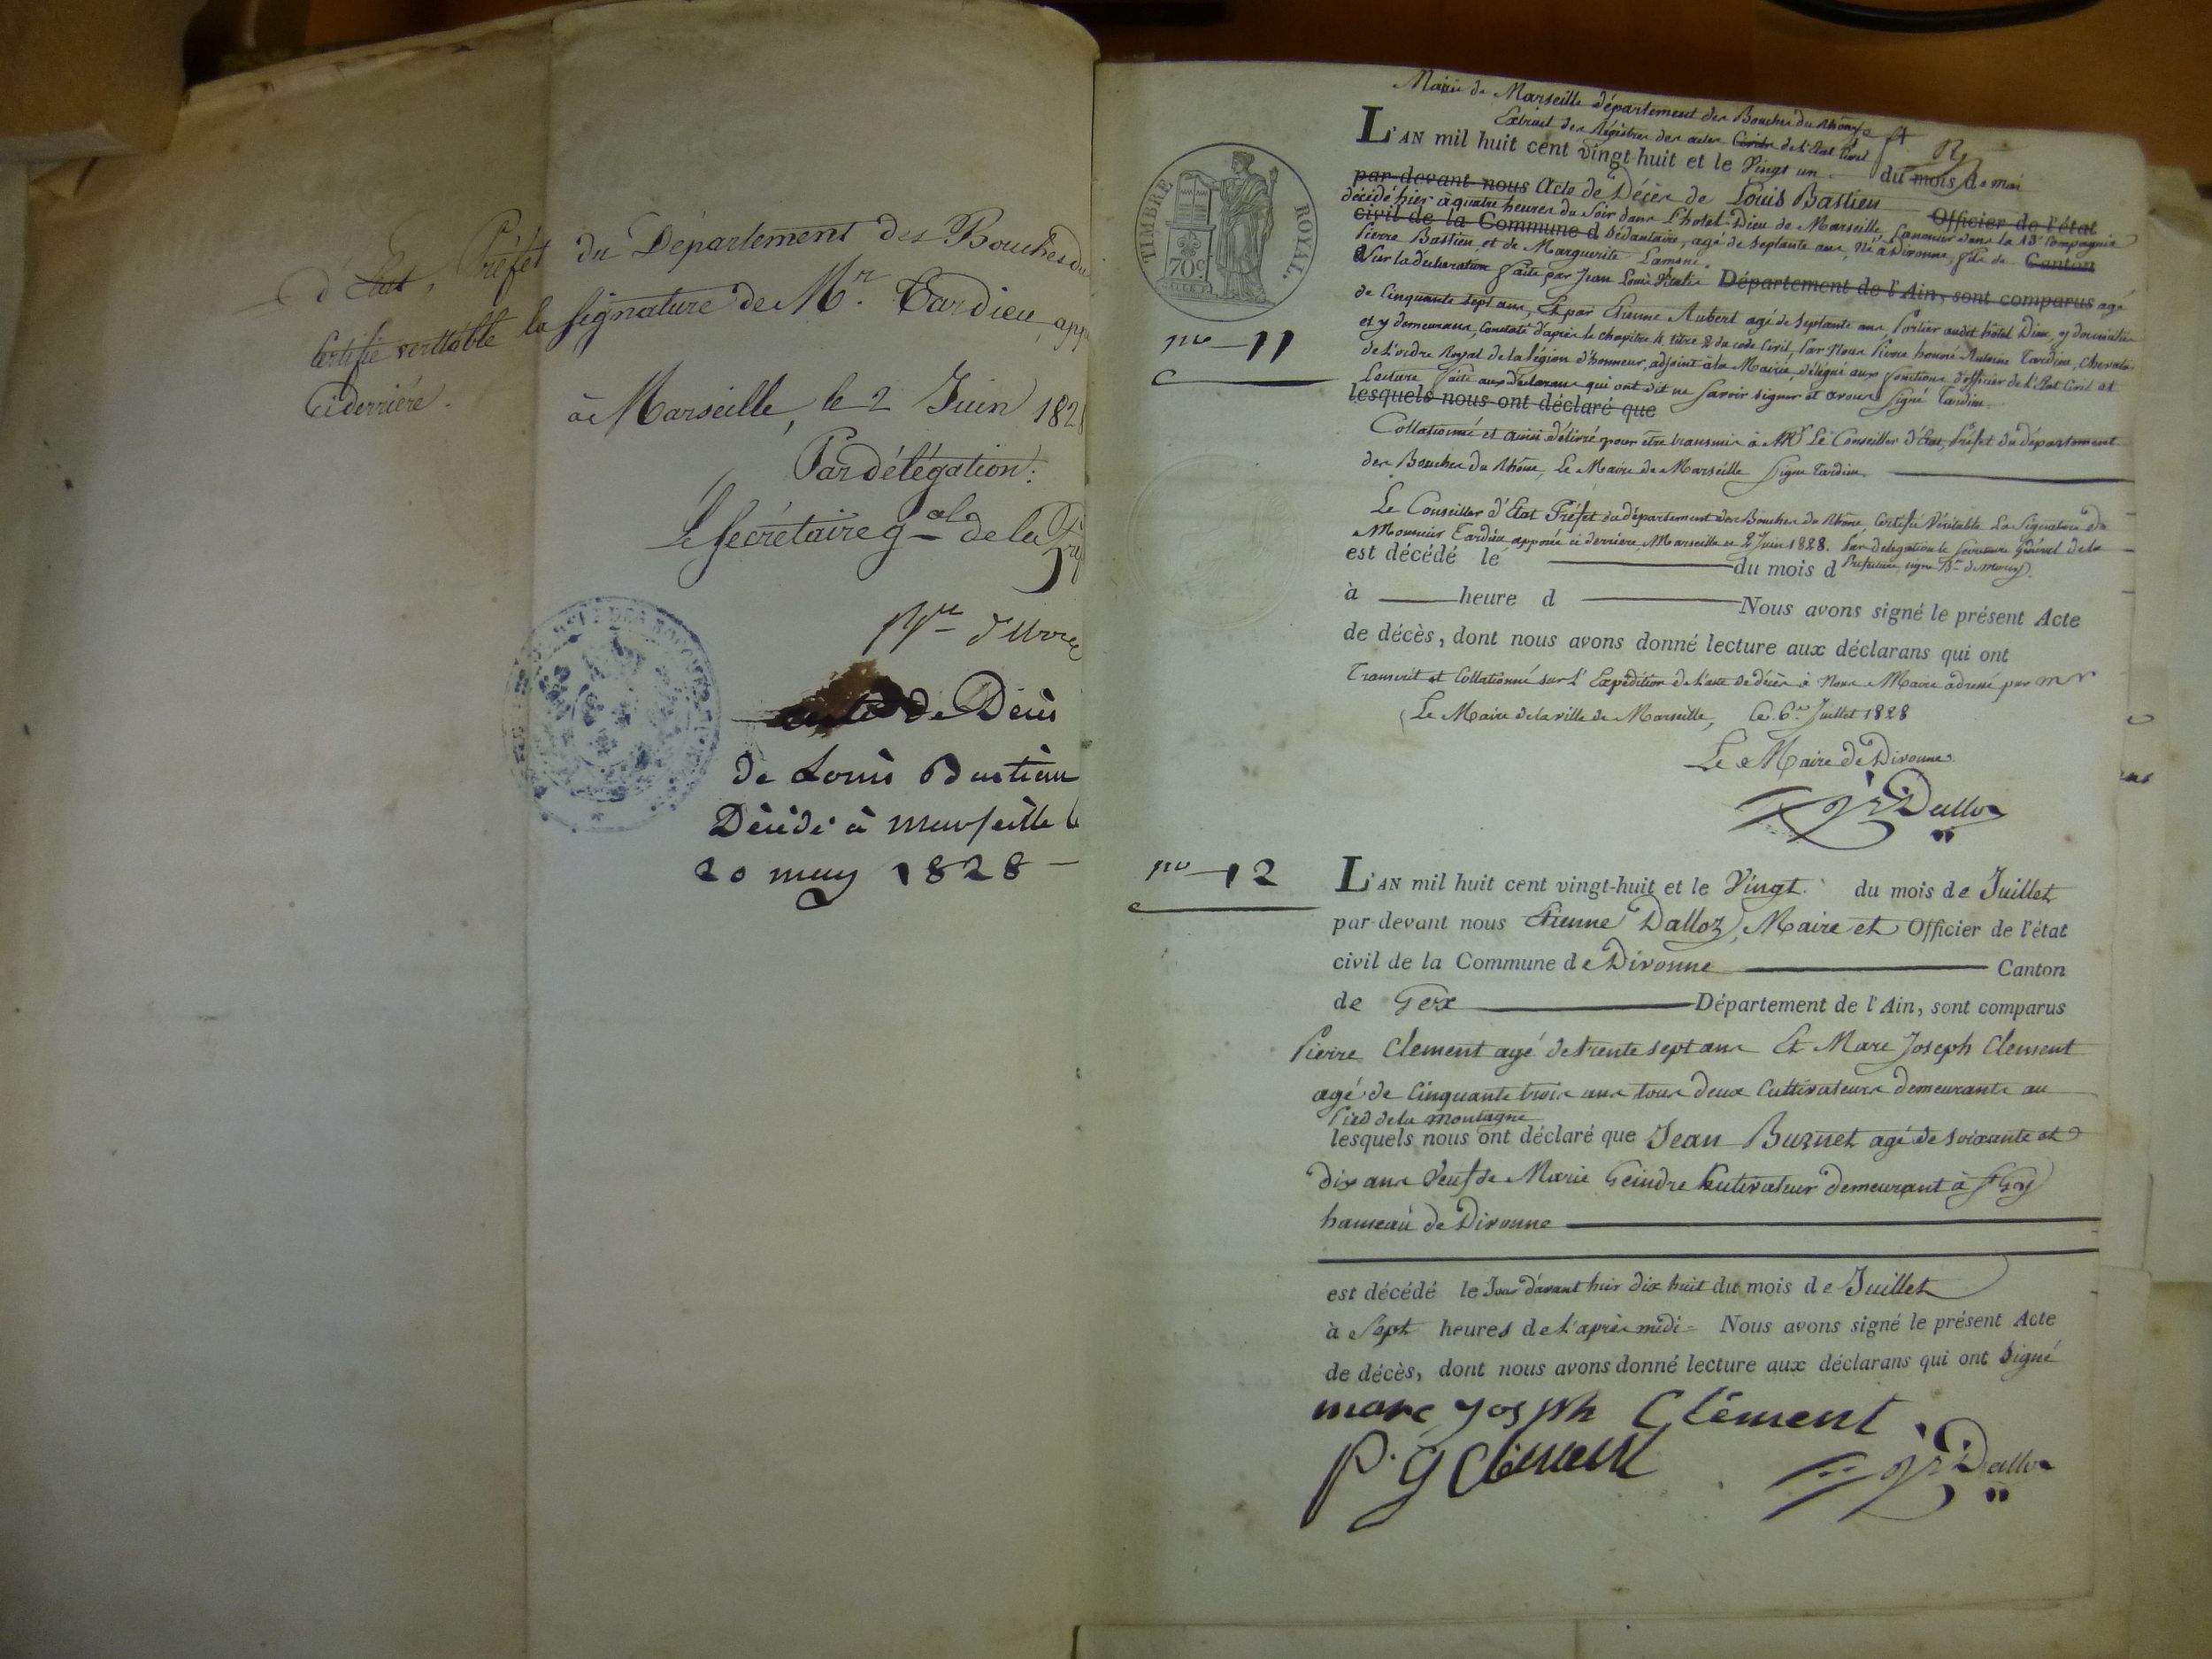 d'Etat, Préfet du Département des Bouches du
Certifie veritable la signature de Mr. Tardieu, app
Ciderrière.
à Marseille, le 2 Juin 182
Par délégation:
Le secrétaire gal de la Pré
de Décès
de Louis Bastian
Décédé à marseille le
20 may 1828 —
TIMBRE ROYAL.
70c
Mairie de Marseille département des Bouches du Rhône
Extrait des Régistres des actes Civils de l'Etat Civil
L'AN mil huit cent vingt-huit et le Vingt un du mois de mai
par-devant nous Acte de Décès de Louis Bastien Officier de l'état
décédé hier à quatre heures du Soir dans l'hotel-Dieu de Marseille, Canonier dans la 13e Compagnie
civil de la Commune d Sédantaire, agé de Septante ans, né à Divonne, fils de Canton
Pierre Bastien et de Marguerite
Sur la déclaration faite par Jean Louis Département de l'Ain, sont comparus agé
no 11
de Cinquante sept ans, Et par Etienne Aubert agé de Septante ans Portier audit hôtel Dieu, y domiciliés
et y demeurans, Constaté d'après le chapitre 4 titre 2 du code Civil, Par Nous Pierre honoré Antoine Tardieu, Chevalier
de L'ordre Royal de la légion d'honneur, adjoint à la Mairie, délégué aux fonctions d'officier de l'Etat Civil et
Lecture faite aux déclarans qui ont dit ne Savoir signer et avons Signé Tardieu
lesquels nous ont déclaré que
Collationné et ainsi délivré pour être transmis à Mr Le Conseiller d'Etat, Préfet du département
des Bouches du Rhône, Le Maire de Marseille Signé Tardieu
Le Conseiller d'Etat Préfet du département des Bouches du Rhône, Certifie Véritable La Signature de
Monsieur Tardieu apposée ci derrière Marseille ce 2 Juin 1828. Par delegation le Secretaire Général de la
est décédé le du mois d Prefecture, signé
à heure d Nous avons signé le présent Acte
de décès, dont nous avons donné lecture aux déclarans qui ont
Transcrit et Collationné sur L'Expédition de L'acte de décès à Nous Maire adressé par mr
Le Maire de la ville de Marseille, Le 6 Juillet 1828
Le Maire de Divonne
Dalloz
no 12
L'AN mil huit cent vingt-huit et le Vingt du mois de Juillet
par-devant nous Etienne Dalloz, Maire et Officier de l'état
civil de la Commune de Divonne Canton
de Gex Département de l'Ain, sont comparus
Pierre Clement agé de trente sept ans Et Marc Joseph Clement
agé de Cinquante trois ans tous deux Cultivateurs demeurants au
Pied de la montagne
lesquels nous ont déclaré que Jean Buznet agé de soixante et
dix ans Veuf de Marie Geindre Cultivateur demeurant à St Gy
hameau de Divonne
est décédé le Jour d'avant hier dix huit du mois de Juillet
à Sept heures de L'après midi Nous avons signé le présent Acte
de décès, dont nous avons donné lecture aux déclarans qui ont Signé
marc joseph Clément
P. G Clément
Dalloz